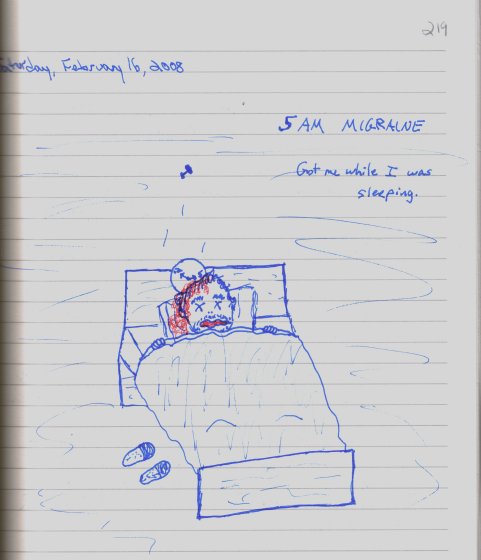 219
Saturday, February 16, 2008
5 AM MIGRAINE
Got me while I was
sleeping.